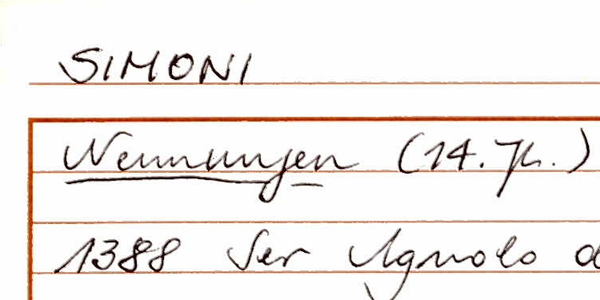 SIMONI
Nennungen (14. Jh.)
1388 Ser Agnolo d